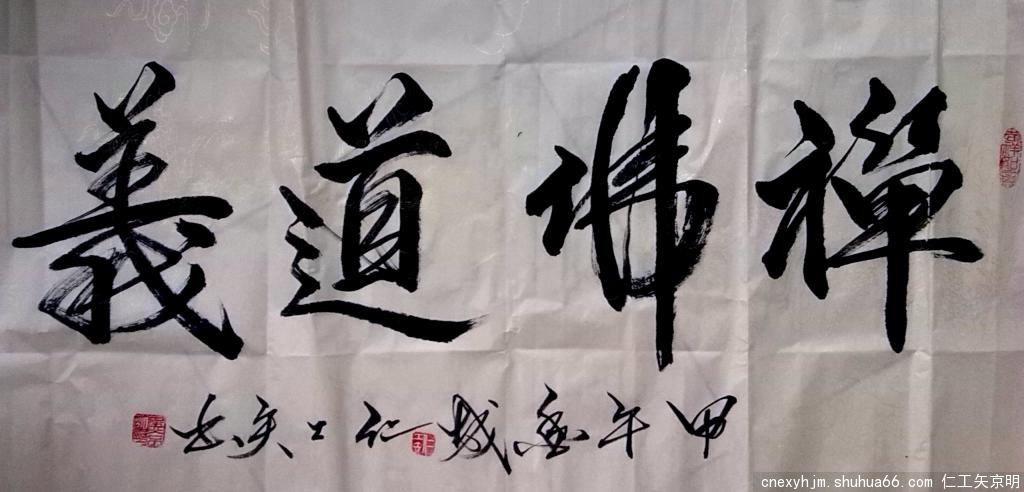 禪佛道義
甲午城仁工矢书
cnexyhjm.shuhua66.com 仁工矢京明